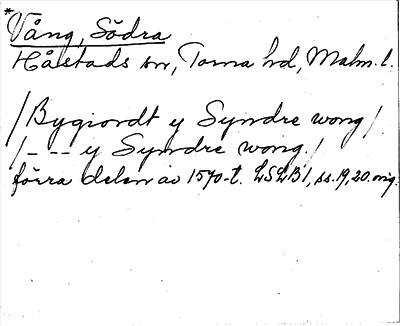 *Vång, Södra
Hårstads sn, Torna hd, Malm. l.
/Bygiordt y Syndre wong/
/- - - y Syndre wong./
förra delen av 1570-t. LSLB1, ss. 19, 20. orig.